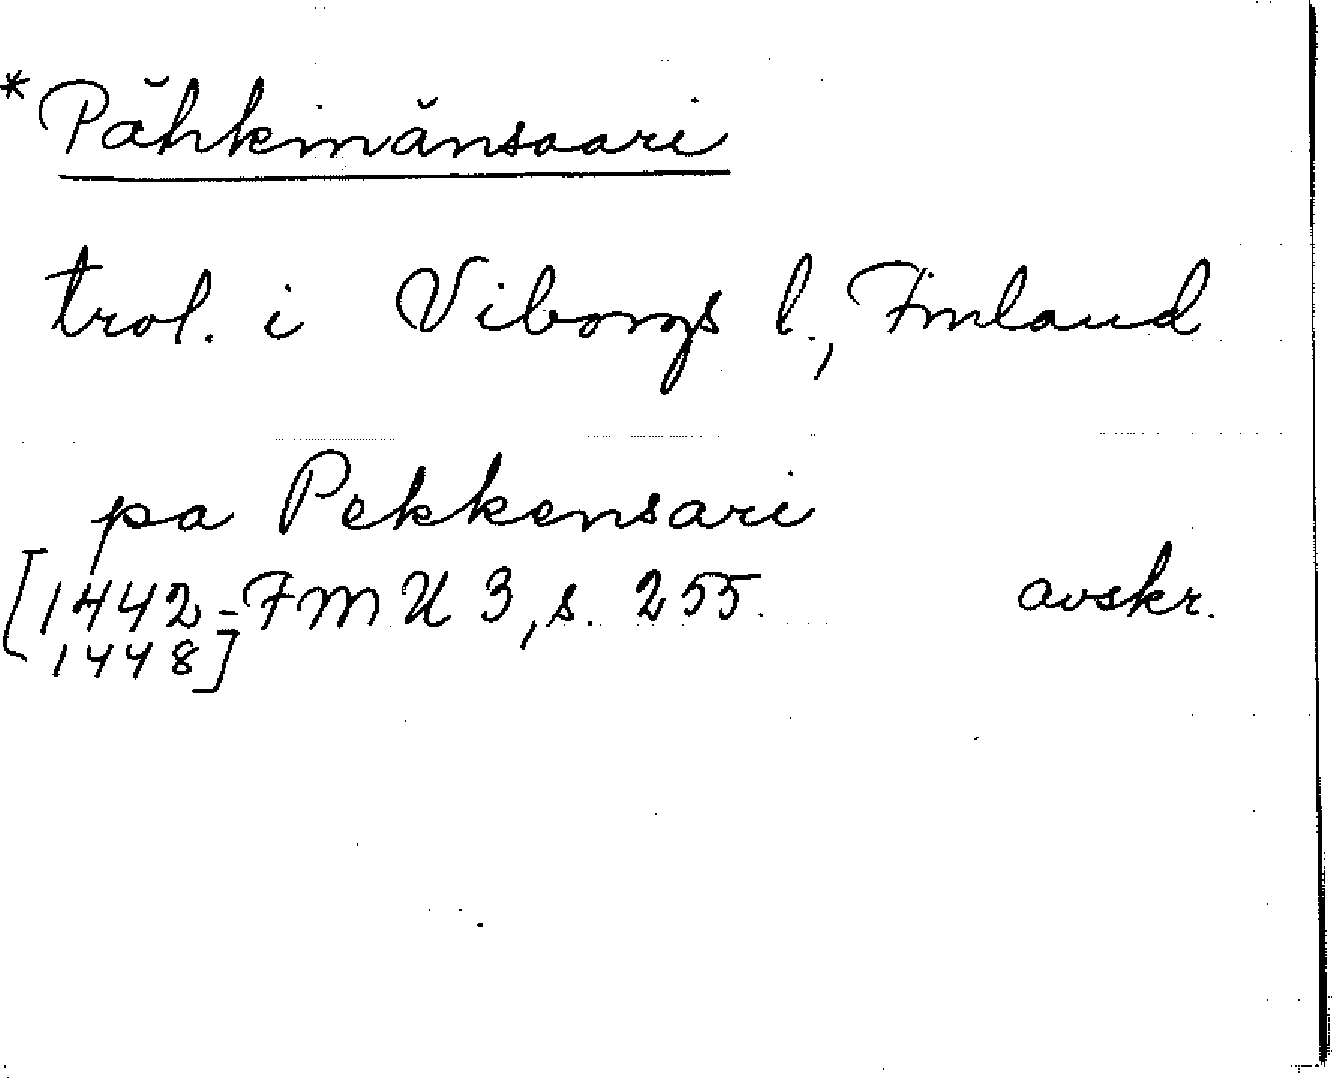 *Pähkinänsaari
trol. i Viborgs l., Finland
pa Pekkensari
[1442- FMU 3, s. 255. avskr.
1448]